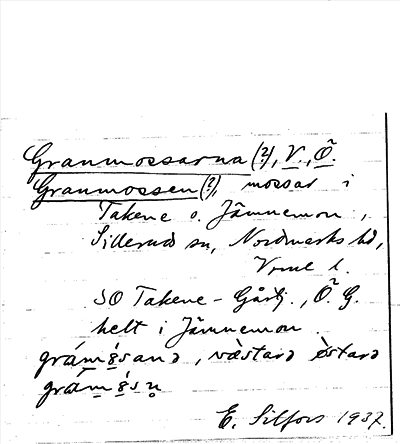 Granmossarna (?), V., Ö.
Granmossen (?), mossar i
Takene o. Jämnemon,
Silleruds sn, Nordmarks hd,
Vrml l.
SO Takene - Gårdsj., Ö. G.
helt i Jämnemon.
grámɷ̀sană, væ̀stară ɷ̀stară
gramɷ́sn̥
E. Silfors 1937.